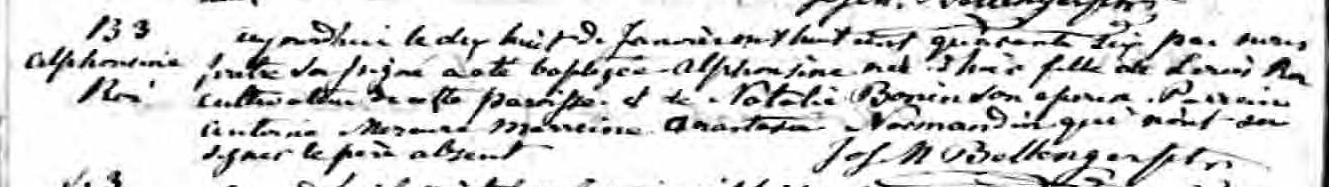 B 3
Alphonsine
Roi
aujourdhui le dix huit de Janvier mil huit cent quarante six par nous
pretre soussigné a été baptizée Alphonsine née d'hier fille de Louis Roi
cultivateur de cette paroisse et de Natalie Bonin son epouse. Parrain
Antoine Mercure Marreine Anastasie Normandin qui n'ont su
signer le père absent
Jos M Bellenger ptre